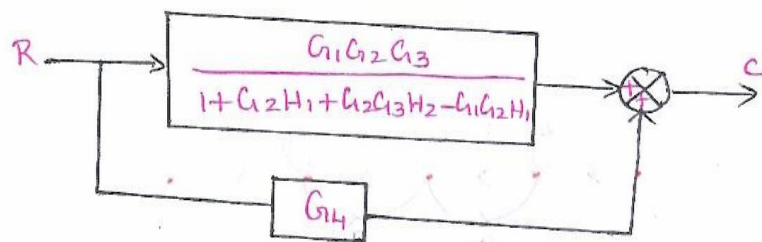 G1G2G3
R
C
1+G2H1+G2G3H2-G1G2H1
+
+
G4